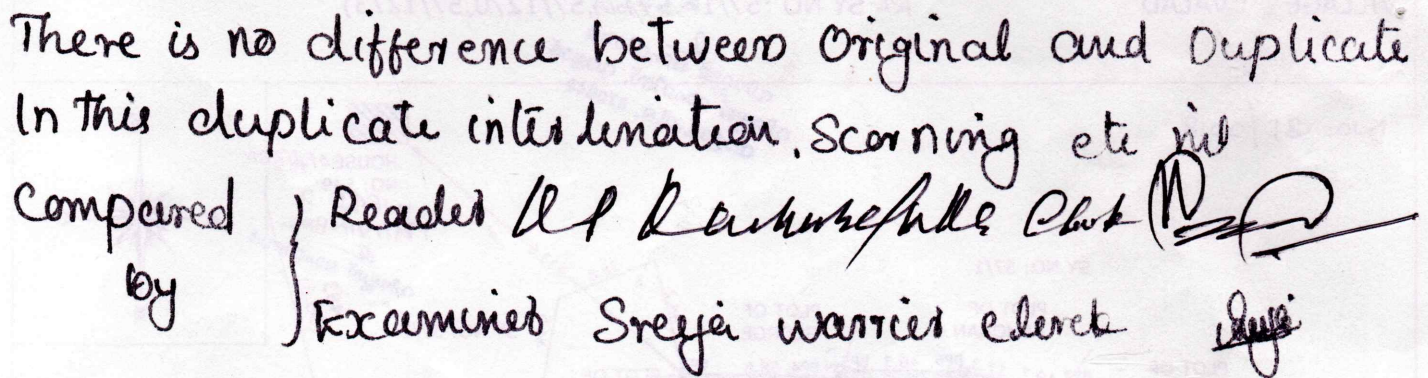 There is no difference between Original and Duplicate
In this duplicate interlination, Scorning etc nil
Compared by } Reader Clerk
Examiner Sreeja warrier clerk